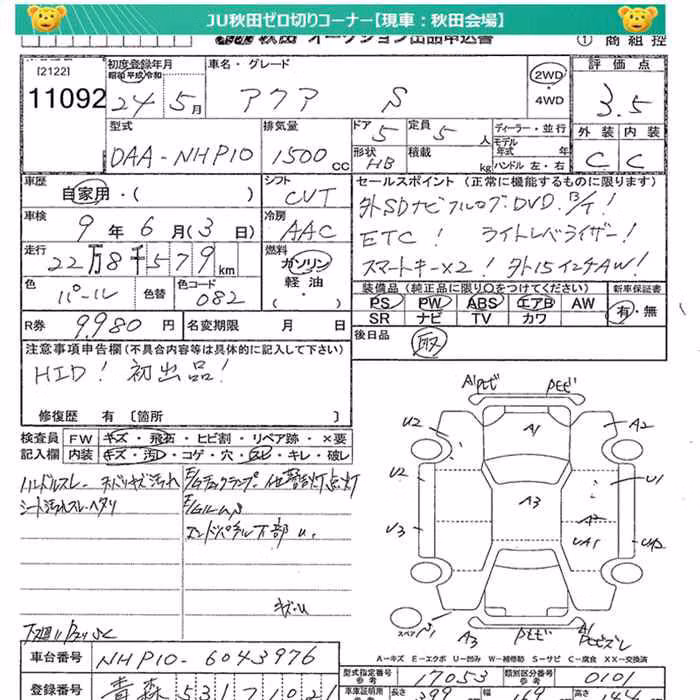 JU秋田ゼロ切りコーナー【現車：秋田会場】
秋田 オークション出品申込書 ① 商組控
[2122] 初度登録年月 車名・グレード 2WD・4WD 評価点
昭和 平成 令和
11092 24年5月 アクア S 3.5
型式 排気量 ドア 5 定員 5人 ディーラー・並行 外装 内装
DAA-NHP10 1500CC 形状 HB 積載 kg モデル年式 年 ハンドル 左・右 C C
車歴 自家用・( ) シフト CVT
セールスポイント (正常に機能するものに限ります)
車検 9年6月(3日) 冷房 AAC
外SDナビフルセグDVD.B/T!
ETC! ライトレベライザー!
走行 22万8千579km 燃料 ガソリン 軽油
スマートキー×2! 外15インチAW!
色 パール 色替 色コード 082
装備品 (純正品に限り○をつけてください) 新車保証書
PS PW ABS エアB AW 有・無
SR ナビ TV カワ
R券 9,980円 名変期限 月 日
後日品 取
注意事項申告欄 (不具合内容等は具体的に記入して下さい)
HID! 初出品!
修復歴 有 [箇所 ]
検査員 FW キズ・飛石・ヒビ割・リペア跡・×要
記入欄 内装 キズ・汚レ・コゲ・穴・スレ・キレ・破レ
ハンドルスレ
シート汚れスレ・ヘタリ
エンドパネル下部 U1
A1 ピビ ピビ
U2 A1 A2
U2 A3 U1
A2
U3 UA1 UA2
スペア A3 ピビ
A-キズ E-エクボ U-凹み W-補修跡 S-サビ C-腐食 XX-交換済
車台番号 NHP10-6043976 型式指定番号 参考 17053 類別区分番号 参考 0101
登録番号 青森 531 車庫証明用 参考 長さ 399 幅 169 高さ 144